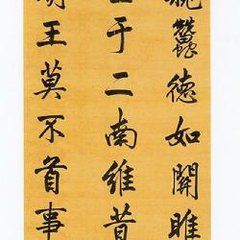 蠶德如關雎
于二南維昔
王莫不首事